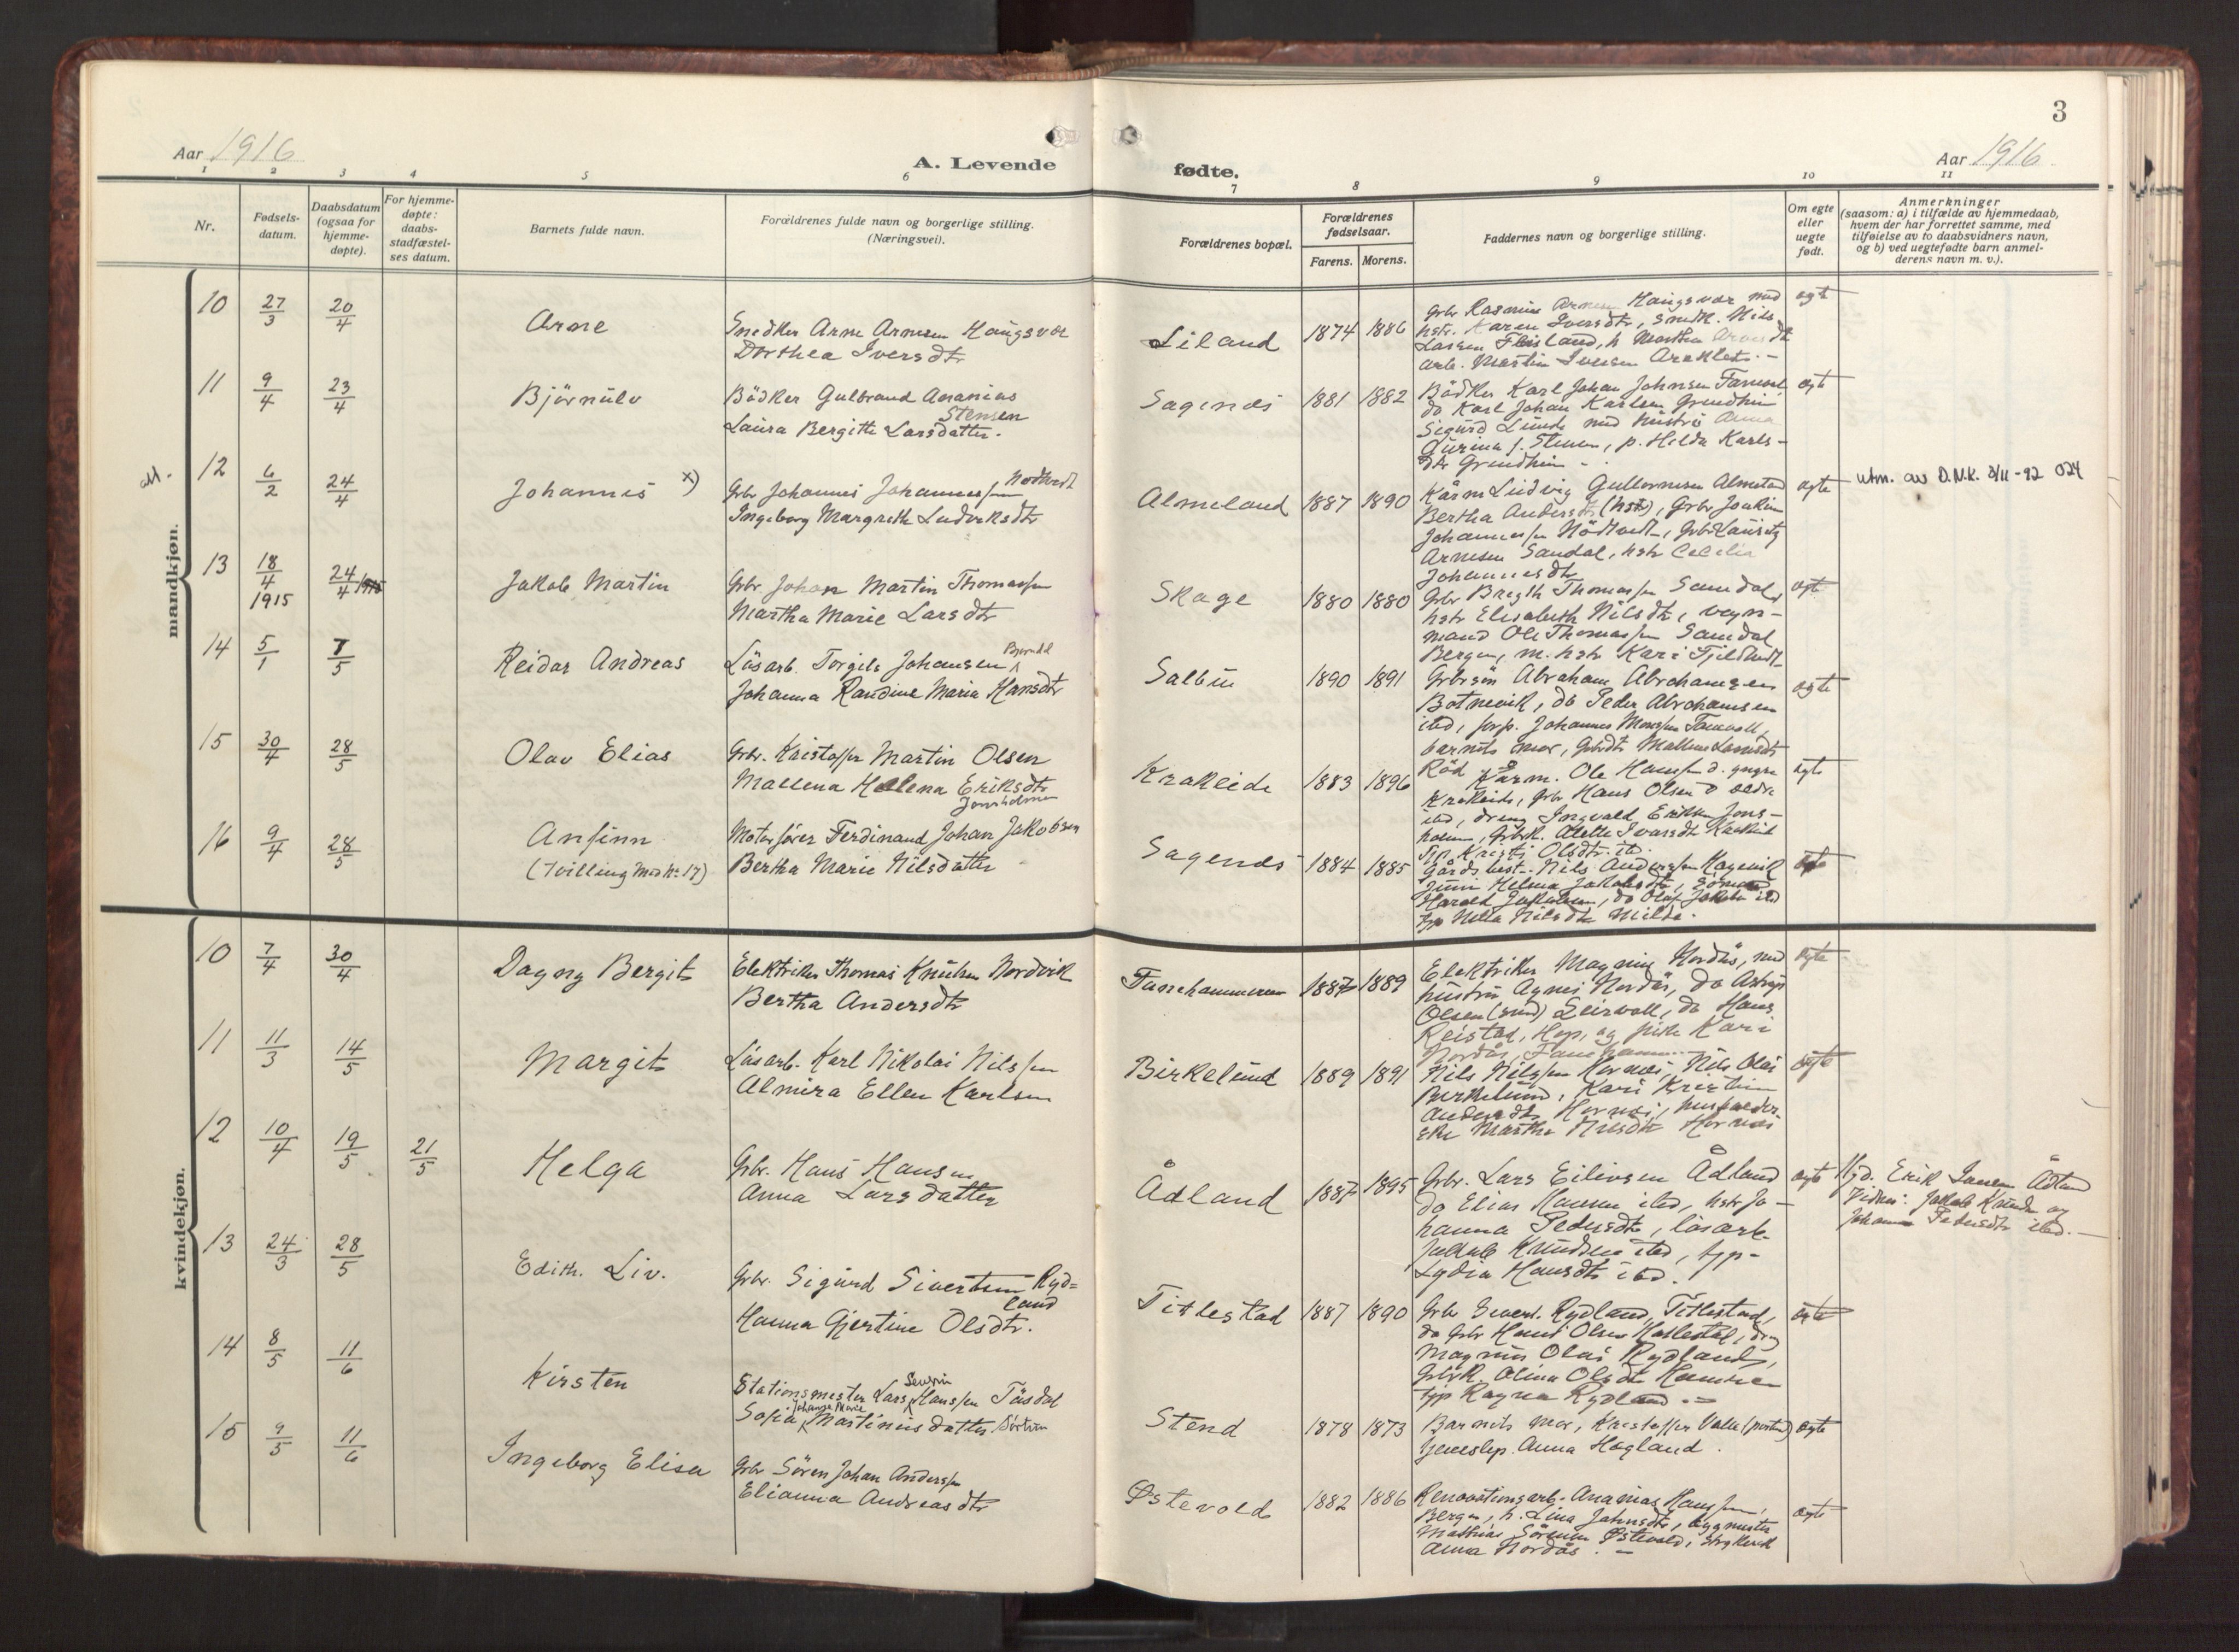 3
Aar 1916
A. Levende
fødte.
Aar 1916
1 2 3 4 5 6 7 8 9 10 11
Nr.
Fødsels-
datum.
Daabsdatum
(ogsaa for
hjemme-
døpte).
For hjemme-
døpte:
daabs-
stadfæstel-
ses datum.
Barnets fulde navn.
Forældrenes fulde navn og borgerlige stilling.
(Næringsvei).
Forældrenes bopæl.
Forældrenes
fødselsaar.
Farens. Morens.
Faddernes navn og borgerlige stilling.
Om egte
eller
uegte
født.
Anmerkninger
(saasom: a) i tilfælde av hjemmedaab,
hvem der har forrettet samme, med
tilføielse av to daabsvidners navn,
og b) ved uegtefødte barn anmel-
derens navn m. v.).
mandkjøn.
10 27/3 20/4 Arne
Snedker Arne Arnesen Haugsvær
Dorthea Iversdtr
Liland 1874 1886
Grbr Rasmus Arnesen Haugsvær med
hstr. Karen Iversdtr, snedk. Nils
Larsen Flesland, h Marthea
arb. Martin Iversen
egte
11 9/4 23/4 Björnulv
Bödker Gulbrand Ananias
Stensen
Laura Bergitte Larsdatter.
Sagenes 1881 1882
Bödker Karl Johan Johnsen
do Karl Johan Karlsen Grendheim
Sigurd Lunde med hustru Anna
Gurina f. Stensen, p. Helda Karls-
dtr Grendheim -
egte
12 6/2 24/4 Johannes x)
Grbr Johannes Johannessen Nordtvedt
Ingeborg Margrethe Ludviksdtr
Almeland 1887 1890
Kårm Ludvig Gullormsen Almeland
Bertha Andersdtr (hstr), Grbr Joakim
Johannessen Nödtvedt, Grbr Lauritz
Arnesen Sandal, hstr Cecelia
Johannesdtr
egte utm. av D.N.K. 3/11-92 024
13 18/4 1915 24/4 Jakob Martin
Grbr Johan Martin Thomassen
Martha Marie Larsdtr
Skage 1880 1880
Grbr Thomassen Samdal,
hstr Elisabeth Nilsdtr, vogn-
mand Ole Thomassen Samdal
Bergen, m. hstr Kari
egte
14 5/1 7/5 Reidar Andreas
Lösarb. Torgils Johansen
Johanna Randine Maria Hansdtr
Salbu 1890 1891
Grbrsön Abraham Abrahamsen
Botnevik, do Peder Abrahamsen
ibd, Johannes
barnets mor, Grbdtr
egte
15 30/4 28/5 Olav Elias
Grbr. Kristoffer Martin Olsen
Mallena Helena Eriksdtr
Jonsholmen
Krakeide 1883 1896
Kårm. Ole Hansen d. yngre
Krakeide, Grbr Hans Olsen d ældre
ibd, dreng Ingvald Eriksen Jons-
holmen, Alette Ivarsdtr
Kristi Olsdtr. ibd.
egte
16 9/4 28/5 Anfinn
(Tvilling med Nr 17)
Motorfører Ferdinand Johan Jakobsen
Bertha Marie Nilsdatter
Sagenes 1884 1885
Gårdbest. Nils Anderssen
Helma Jakobsdtr, sömand
Harald Jakobsen, do Olaf ibd
Nilsdtr Milde.
egte
kvindekjøn.
10 7/4 30/4 Dagny Bergit
Elektriker Thomas Knutsen Nordvik
Bertha Andersdtr
Fanehammeren 1887 1889
Elektriker Magnus Nordås, med
hustru Agnes Nordås, do
Olsen (smed) Leirvoll, do Hans
Reistad, Hop, og pike Kari
Nordås, Faneham
egte
11 11/3 14/5 Margit
Lösarb. Karl Nikolai Nilssen
Almira Ellen Karlsen
Birkelund 1889 1891
Nils Nilssen Hornes, Nils Olai
Birkelund, Kari Kristine
Andersdtr Hornes,
Martha Nilsdtr Hornes
egte
12 10/4 19/5 21/5 Helga
Grbr. Hans Hansen
Anna Larsdatter
Ådland 1887 1895
Grbr. Lars Eilivsen Ådland
do Elias Hansen ibd, hstr Jo-
hanna Pedersdtr, lösarb.
Jakob Knudsen ibd, tjp-
Lydia Hansdtr ibd.
egte
Hjd. Erik Ådland
Vidner: Jakob Knudsen og
Johanna Pedersdtr ibd. -
13 24/3 28/5 Edith. Liv.
Grbr. Sigurd Sivertsen Ryd=
land
Hanna Gjertine Olsdtr.
Titlestad 1887 1890
Grbr Sivert. Rydland, Titlestad,
do Grbr Hans Olsen
Magnus Olai Rydland,
Grbrk. Olina Olsdtr Hamre
tjp Ragna Rydland. -
egte
14 8/5 11/6 Kirsten
Stationsmester Lars Severin Hanssen Täsdal
Sofia Johanna Marie Martinusdatter Sörtun
Stend 1878 1873
Barnets mor, Kristoffer Valle
tjeneslep. Anna Hogland.
egte
15 9/5 11/6 Ingeborg Elisa
Grbr Sören Johan Anderssen
Elianna Andreasdtr
Østevold 1882 1886
Renovationsarb. Ananias Hanssen,
Bergen, h. Lina Johnsdtr, bygmester
Mathias Sörensen Østevold,
Anna Nordås. -
egte